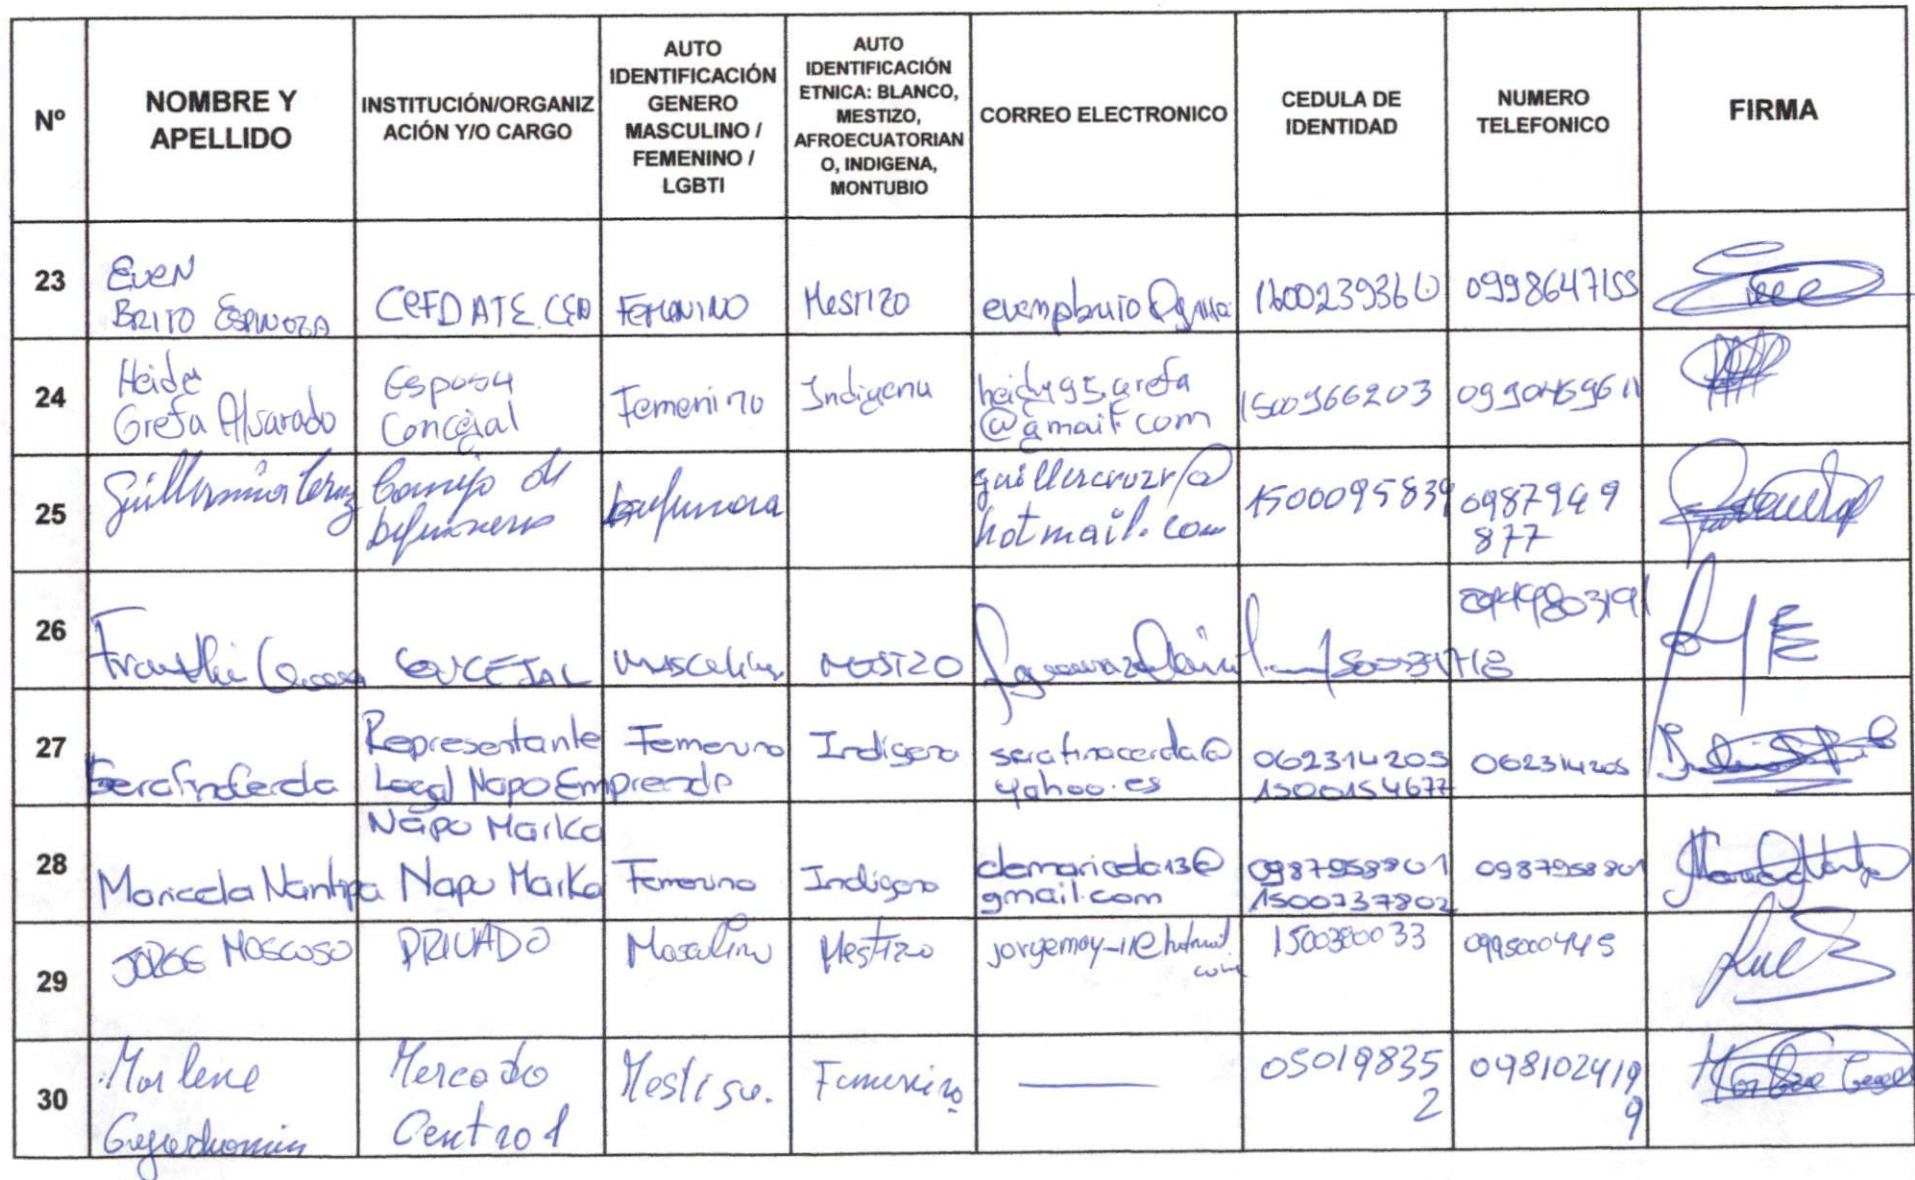 Nº
NOMBRE Y
APELLIDO
INSTITUCIÓN/ORGANIZ
ACIÓN Y/O CARGO
AUTO
IDENTIFICACIÓN
GENERO
MASCULINO /
FEMENINO /
LGBTI
AUTO
IDENTIFICACIÓN
ETNICA: BLANCO,
MESTIZO,
AFROECUATORIAN
O, INDIGENA,
MONTUBIO
CORREO ELECTRONICO
CEDULA DE
IDENTIDAD
NUMERO
TELEFONICO
FIRMA
23
Even
BRITO ESPINOZA
FEMENINO
Mestizo
1600239360
0998647155
24
Heide
Grefa Alvarado
Esposa
Concejal
Femenino
Indigena
heidy95.grefa
@gmail.com
1500966203
25
Consejo de
guillercruzr@
hotmail.com
1500095839
0987949
877
26
CONCEJAL
MESTIZO
27
Serafina Cerda
Representante
Legal Napo Emprende
Femenino
Indigena
serafinacerda@
yahoo.es
062314205
1500154677
062314205
28
Maricela Nantipa
Napo Marka
Napo Marka
Femenino
Indigena
clemaricela13@
gmail.com
0987958801
1500737802
0987958801
29
JORGE MOSCOSO
PRIVADO
Masculino
Mestizo
1500380033
0995000445
30
Marlene
Mercado
Central
Mestiso.
Femenino
05019835
2
098102419
9